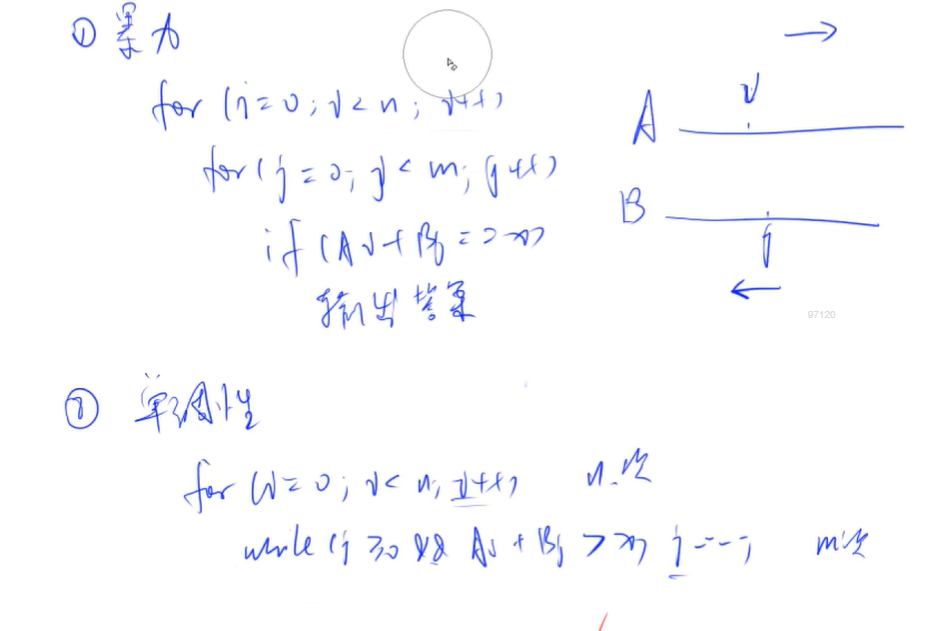 ① 暴力
for (i=0; i<n; i++)
for (j=0; j<m; j++)
if (Ai+Bj==x)
输出答案
i
A
B
j
97120
② 单调性
for (i=0; i<n; i++) n次
while (j≥0 && Ai+Bj>x) j--; m次